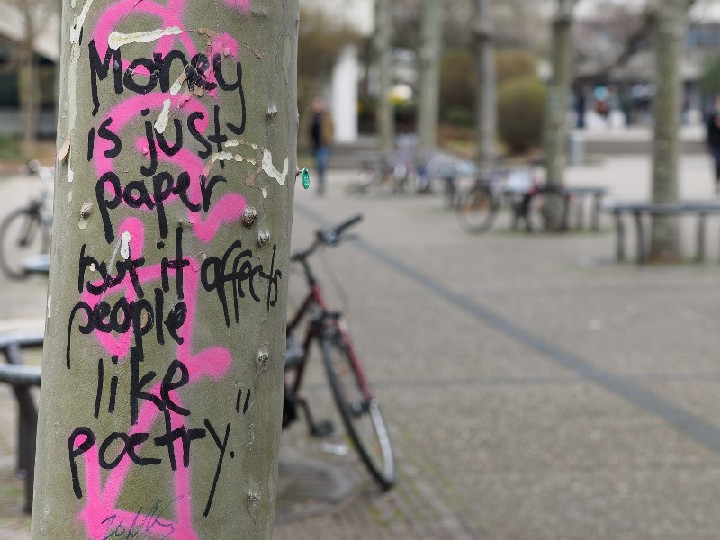 Money
is just
paper
but it affects
people
like
poetry."